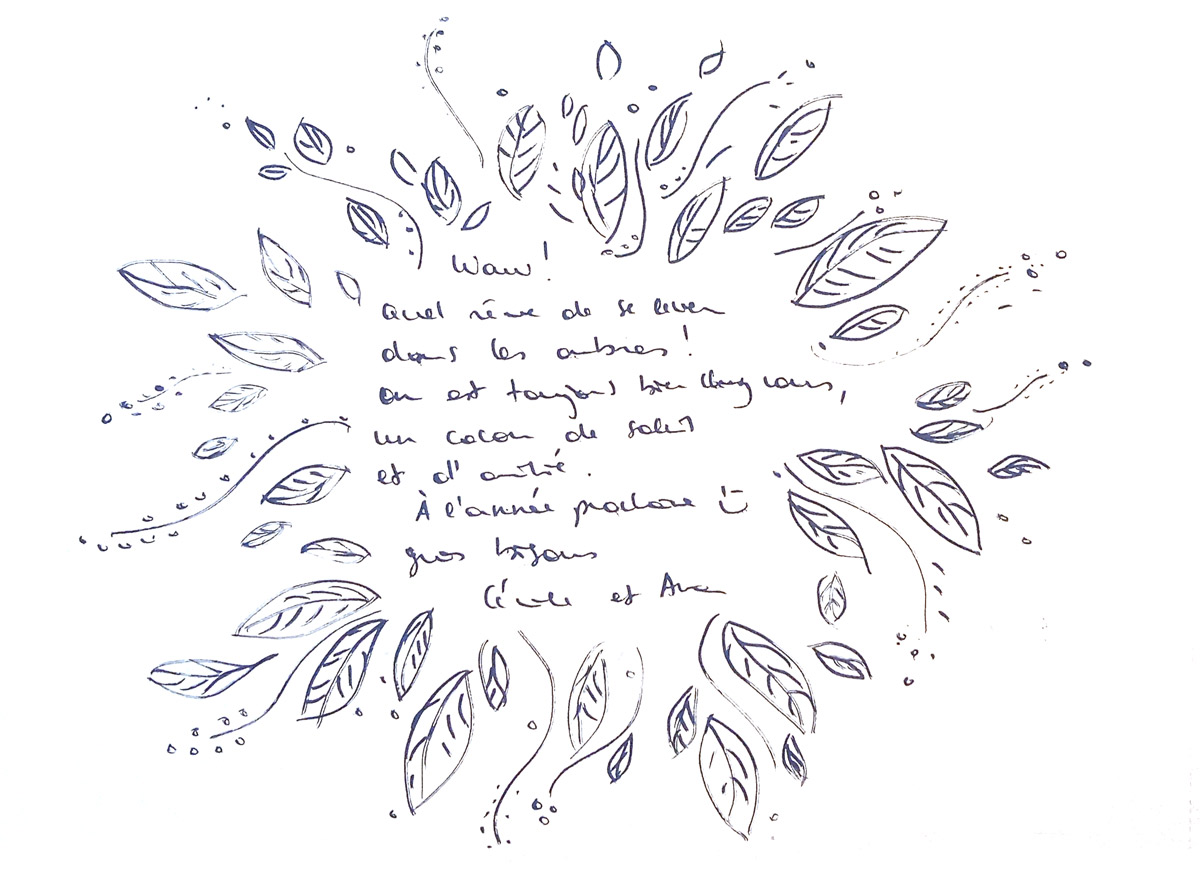 Waw!
Quel rêve de se lever
dans les arbres!
on est toujours bien chez vous,
un cocon de soleil
et d'amitié.
À l'année prochaine
gros bisous
Cécile et